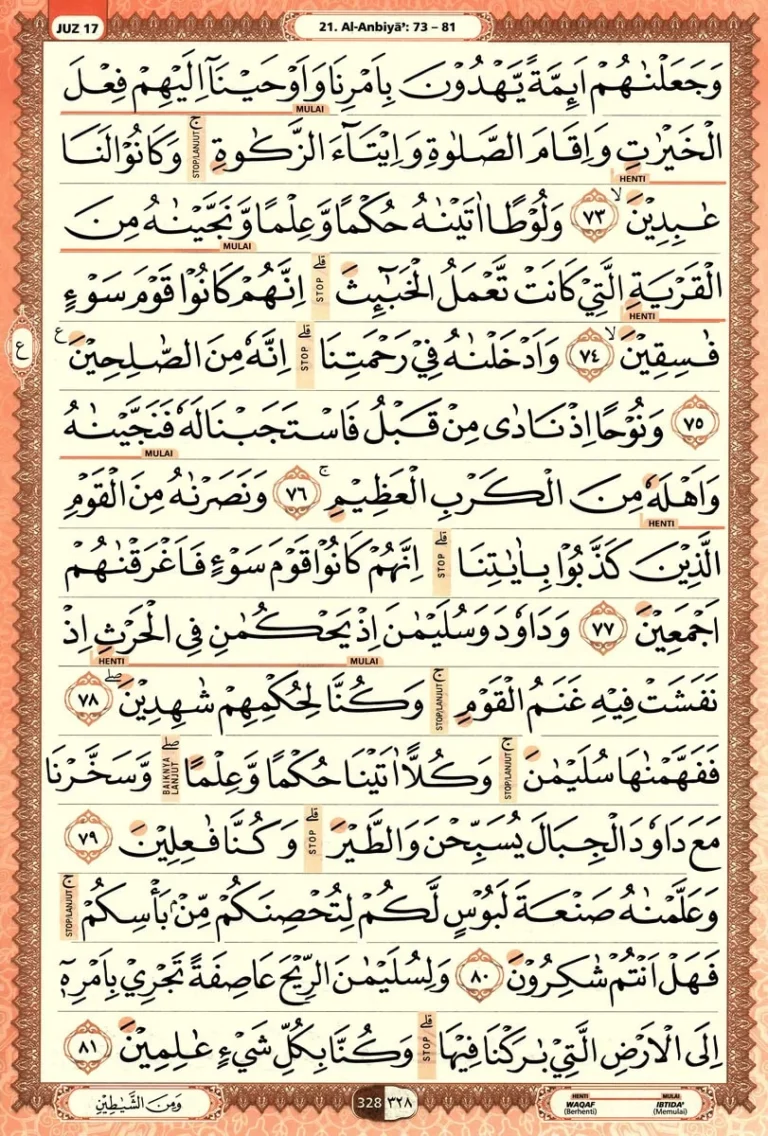 JUZ 17
21. Al-Anbiyā': 73 – 81
وَجَعَلْنٰهُمْ اَىِٕمَّةً يَّهْدُوْنَ بِاَمْرِنَا وَاَوْحَيْنَآ اِلَيْهِمْ فِعْلَ
MULAI
الْخَيْرٰتِ وَاِقَامَ الصَّلٰوةِ وَاِيْتَاۤءَ الزَّكٰوةِۚ STOP/LANJUT وَكَانُوْا لَنَا
HENTI
عٰبِدِيْنَ ۙ ٧٣ وَلُوْطًا اٰتَيْنٰهُ حُكْمًا وَّعِلْمًا وَّنَجَّيْنٰهُ مِنَ
MULAI
الْقَرْيَةِ الَّتِيْ كَانَتْ تَّعْمَلُ الْخَبٰۤىِٕثَ ۗ STOP اِنَّهُمْ كَانُوْا قَوْمَ سَوْءٍ
HENTI
فٰسِقِيْنَ ۙ ٧٤ وَاَدْخَلْنٰهُ فِيْ رَحْمَتِنَا ۗ STOP اِنَّهٗ مِنَ الصّٰلِحِيْنَ ع
ع
٧٥ وَنُوْحًا اِذْ نَادٰى مِنْ قَبْلُ فَاسْتَجَبْنَا لَهٗ فَنَجَّيْنٰهُ
MULAI
وَاَهْلَهٗ مِنَ الْكَرْبِ الْعَظِيْمِ ۚ ٧٦ وَنَصَرْنٰهُ مِنَ الْقَوْمِ
HENTI
الَّذِيْنَ كَذَّبُوْا بِاٰيٰتِنَا ۗ STOP اِنَّهُمْ كَانُوْا قَوْمَ سَوْءٍ فَاَغْرَقْنٰهُمْ
اَجْمَعِيْنَ ٧٧ وَدَاوٗدَ وَسُلَيْمٰنَ اِذْ يَحْكُمٰنِ فِى الْحَرْثِ اِذْ
HENTI MULAI
نَفَشَتْ فِيْهِ غَنَمُ الْقَوْمِۚ STOP/LANJUT وَكُنَّا لِحُكْمِهِمْ شٰهِدِيْنَ ۖ ٧٨
فَفَهَّمْنٰهَا سُلَيْمٰنَۚ STOP/LANJUT وَكُلًّا اٰتَيْنَا حُكْمًا وَّعِلْمًا ۖ BAIKNYA LANJUT وَّسَخَّرْنَا
مَعَ دَاوٗدَ الْجِبَالَ يُسَبِّحْنَ وَالطَّيْرَۗ STOP وَكُنَّا فٰعِلِيْنَ ٧٩
وَعَلَّمْنٰهُ صَنْعَةَ لَبُوْسٍ لَّكُمْ لِتُحْصِنَكُمْ مِّنْۢ بَأْسِكُمْۚ STOP/LANJUT
فَهَلْ اَنْتُمْ شٰكِرُوْنَ ٨٠ وَلِسُلَيْمٰنَ الرِّيْحَ عَاصِفَةً تَجْرِيْ بِاَمْرِهٖٓ
اِلَى الْاَرْضِ الَّتِيْ بٰرَكْنَا فِيْهَاۗ STOP وَكُنَّا بِكُلِّ شَيْءٍ عٰلِمِيْنَ ٨١
وَمِنَ الشَّيٰطِيْنِ
328 ٣٢٨
HENTI MULAI
WAQAF IBTIDA'
(Berhenti) (Memulai)